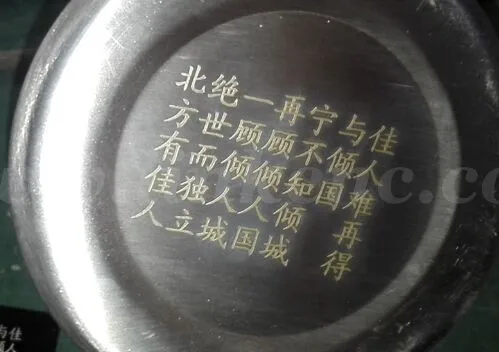 北方有佳人
绝世而独立
一顾倾人城
再顾倾人国
宁不知倾城
与倾国
佳人难再得
与佳